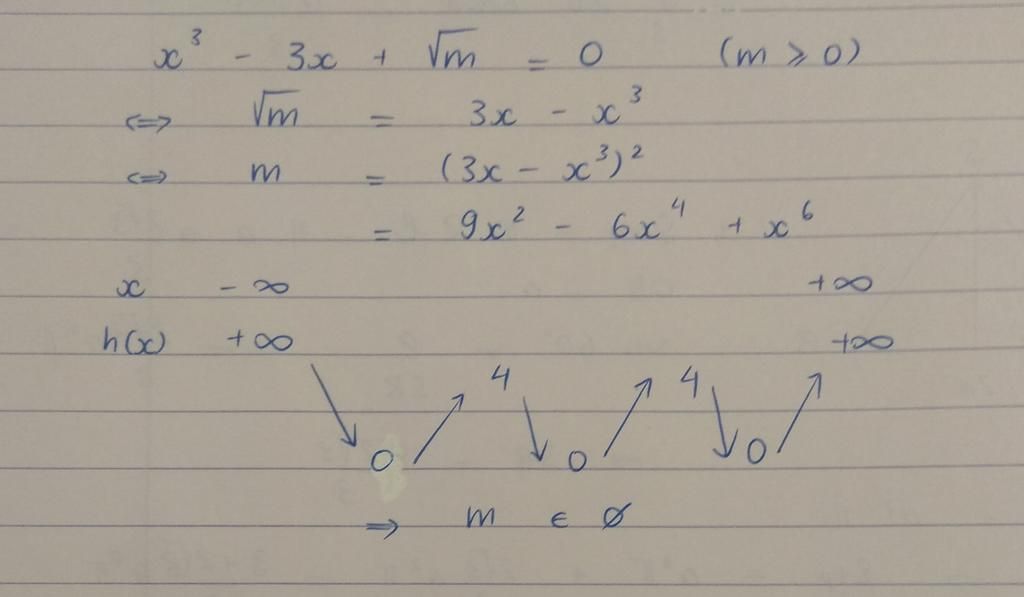 x³ - 3x + √m = 0 (m ⩾ 0)
⇔ √m = 3x - x³
⇔ m = (3x - x³)²
= 9x² - 6x⁴ + x⁶
x -∞ +∞
h(x) +∞ +∞
4 4
0 0 0
⇒ m ∈ ∅